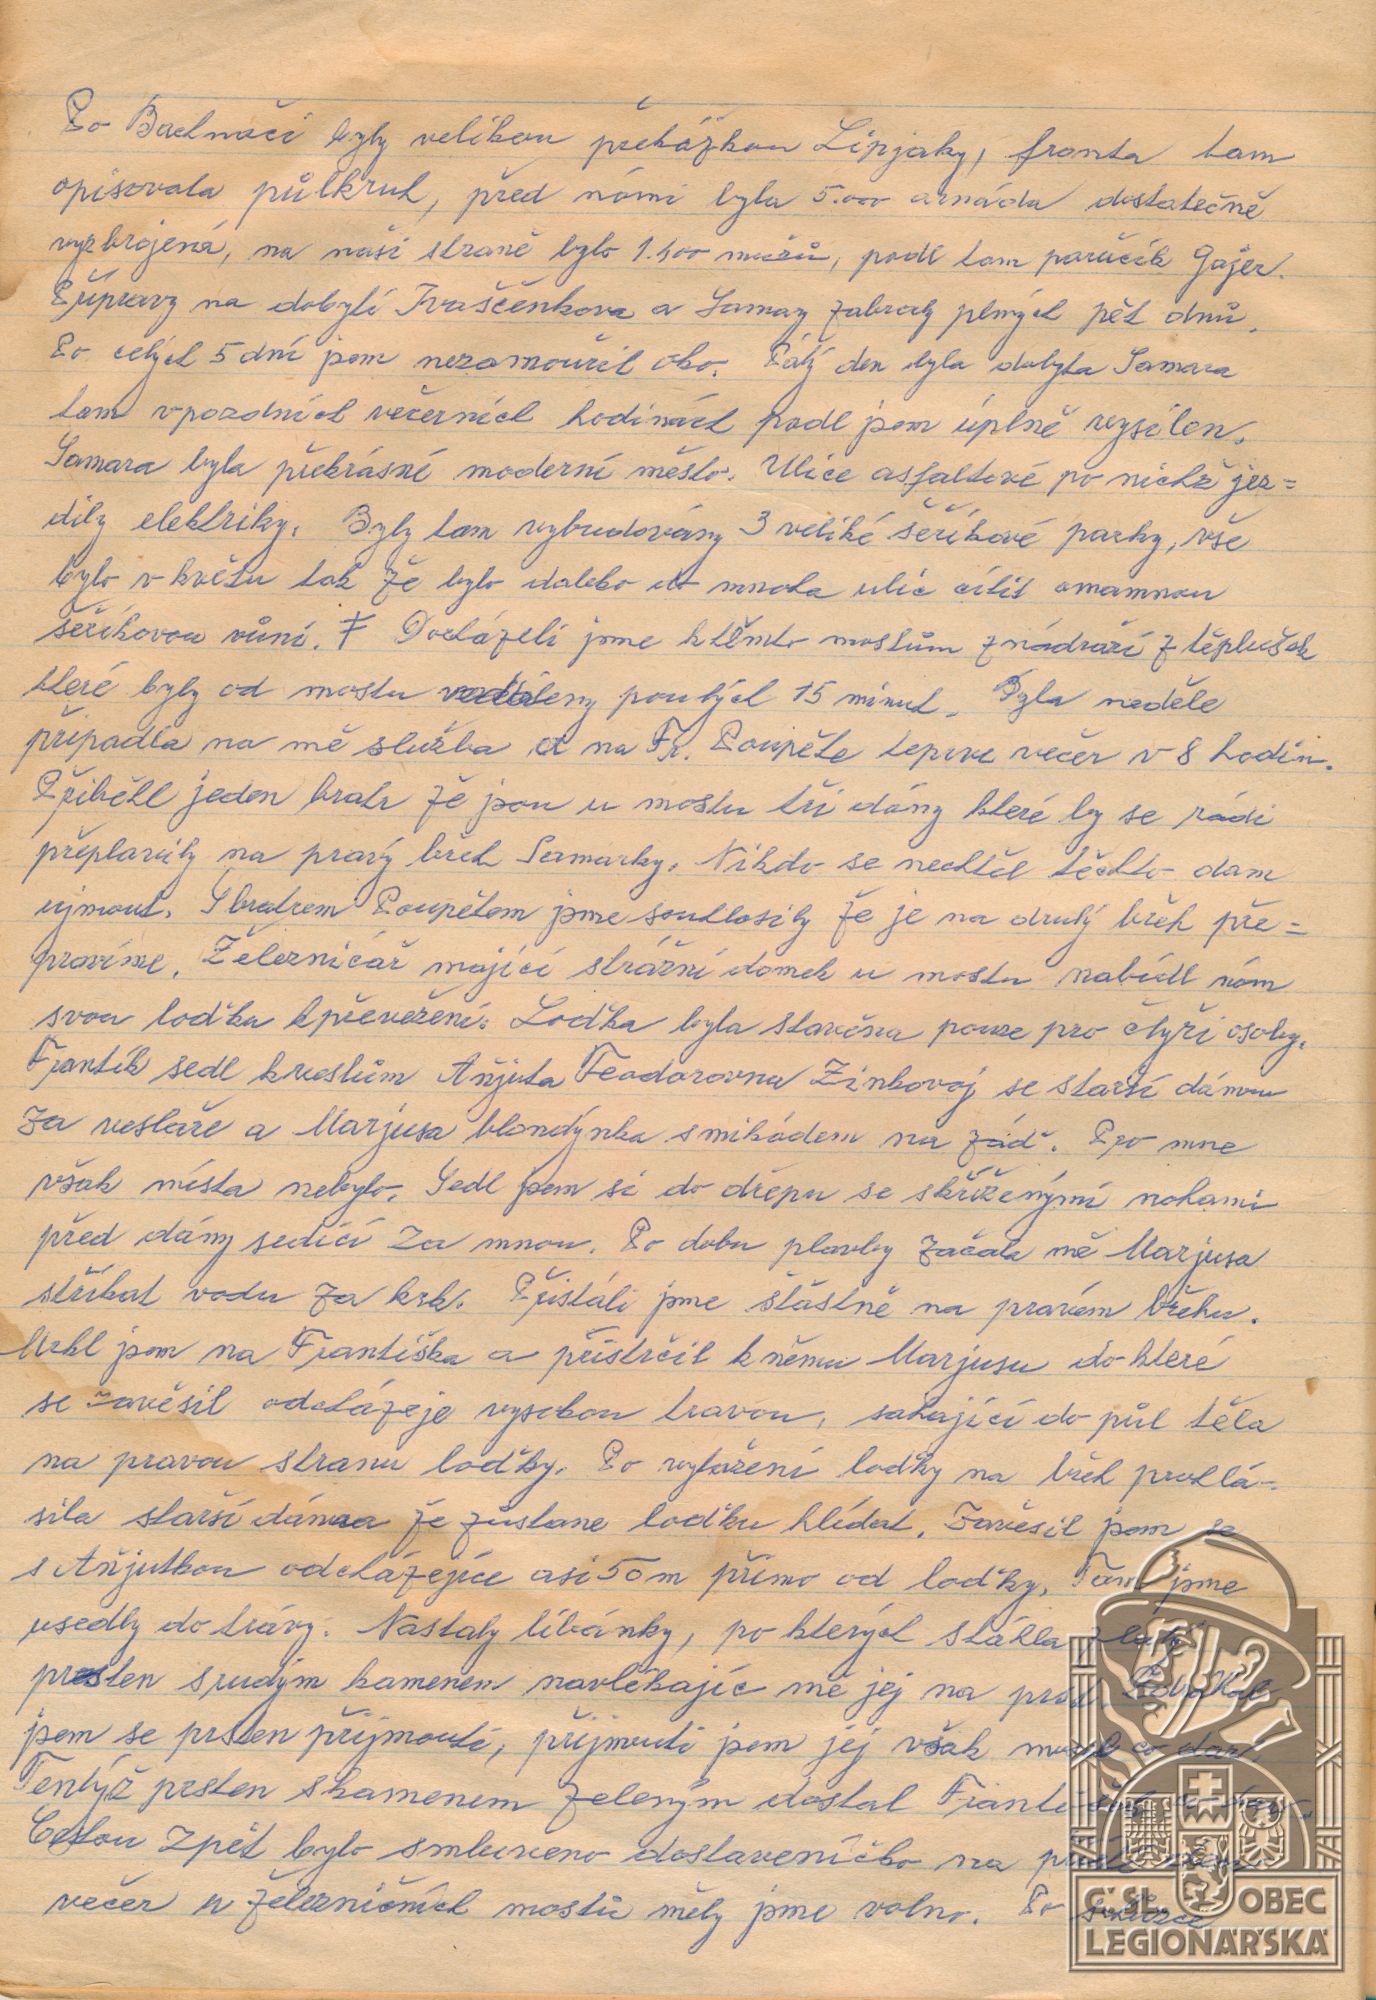 Po Bachmači byly velikou překážkou Lipjaky, fronta tam
opisovala půlkruh, před námi byla 5.000 armáda dostatečně
vyzbrojená, na naší straně bylo 1.400 mužů, padl tam poručík Gájer.
Přípravy na dobytí Ivaščenkova a Samary zabraly plných pět dnů.
Po celých 5 dní jsem nezamouřil oko. Pátý den byla dobyta Samara
tam v pozdních večerních hodinách padl jsem úplně vysílen.
Samara byla překrásné moderní město. Ulice asfaltové po nichž jez=
dily elektriky. Byly tam vybudovány 3 veliké šeříkové parky, vše
bylo v květu tak že bylo daleko do mnoha ulic cítit omamnou
šeříkovou vůni. Docházeli jsme k těmto mostům z nádraží z těplušek
které byly od mostu vzdáleny pouhých 15 minut. Byla neděle
připadla na mě služba a na Fr. Poupěte teprve večer v 8 hodin.
Přiběhl jeden bratr že jsou u mostu tři dámy které by se rádi
přeplavily na pravý břeh Samarky. Nikdo se nechtěl těchto dam
ujmout. S bratrem Poupětem jsme souhlasily že je na druhý břeh pře=
pravíme. Železničář mající strážní domek u mostu nabídl nám
svou loďku k převežení. Loďka byla stavěna pouze pro čtyři osoby.
Frantík sedl k veslům Aňjuta Feodorovna Zinkovoj se starší dámou
za vesláře a Marjusa blondýnka s mikádem na záď. Pro mne
však místa nebylo. Sedl jsem si do dřepu se skříženými nohami
před dámy sedící za mnou. Po dobu plavby začala mě Marjusa
stříkat vodu za krk. Přistáli jsme šťastně na pravém břehu.
Mrkl jsem na Františka a přistrčil k němu Marjusu do které
se zavěsil odcházeje vysokou travou, sahající do půl těla
na pravou stranu loďky. Po vytažení loďky na břeh prohlá-
sila starší dáma že zůstane loďku hlídat. Zavěsil jsem se
s Aňjutkou odcházejíce asi 50 m přímo od loďky. Tam jsme
usedly do trávy. Nastaly líbánky, po kterých stáhla zlatý
prsten s rudým kamenem navlékajíc mě jej na prst.
jsem se prsten přijmouti, přijmouti jsem jej však musel co dar
Tentýž prsten s kamenem zeleným dostal František
Cestou zpět bylo smluveno dostaveníčko na příští
večer u železničních mostů měly jsme volno. Po
Č·SL OBEC
LEGIONÁŘSKÁ